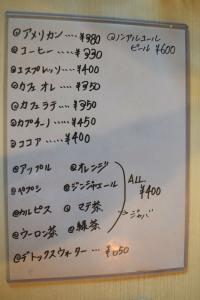 @アメリカン....¥380
@ノンアルコールビール ¥600
@コーヒー.....¥330
@エスプレッソ...¥400
@カフェオレ...¥350
@カフェラテ...¥350
@カプチーノ...¥450
@ココア....¥400
@アップル @オレンジ
@ペプシ @ジンジャエール
@カルピス @マテ茶
@ウーロン茶 @緑茶
ALL ¥400
@デトックスウォーター...